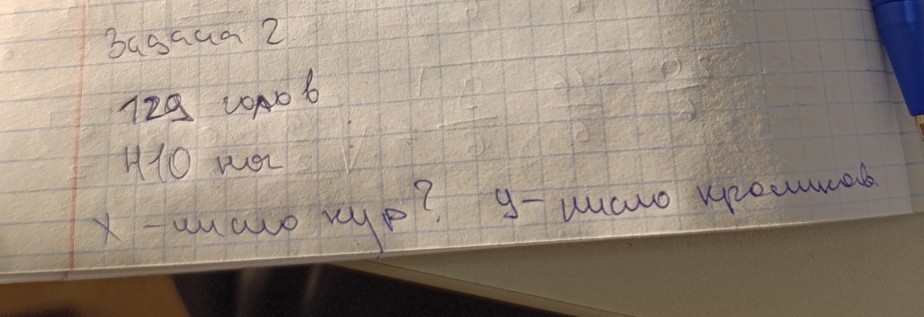 Задача 2
129 голов
410 ног
x - число кур? y - число кроликов.